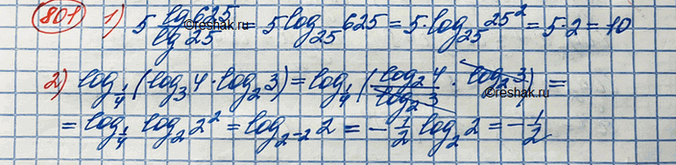 801 1) 5 lg 625 / lg 25 = 5 log₂₅ 625 = 5·log₂₅ 25² = 5·2 = 10
2) log_{1/4} (log₃ 4 · log₂ 3) = log_{1/4} (log₂ 4 / log₂ 3 · log₂ 3) =
= log_{1/4} log₂ 2² = log_{2⁻²} 2 = -1/2 log₂ 2 = -1/2